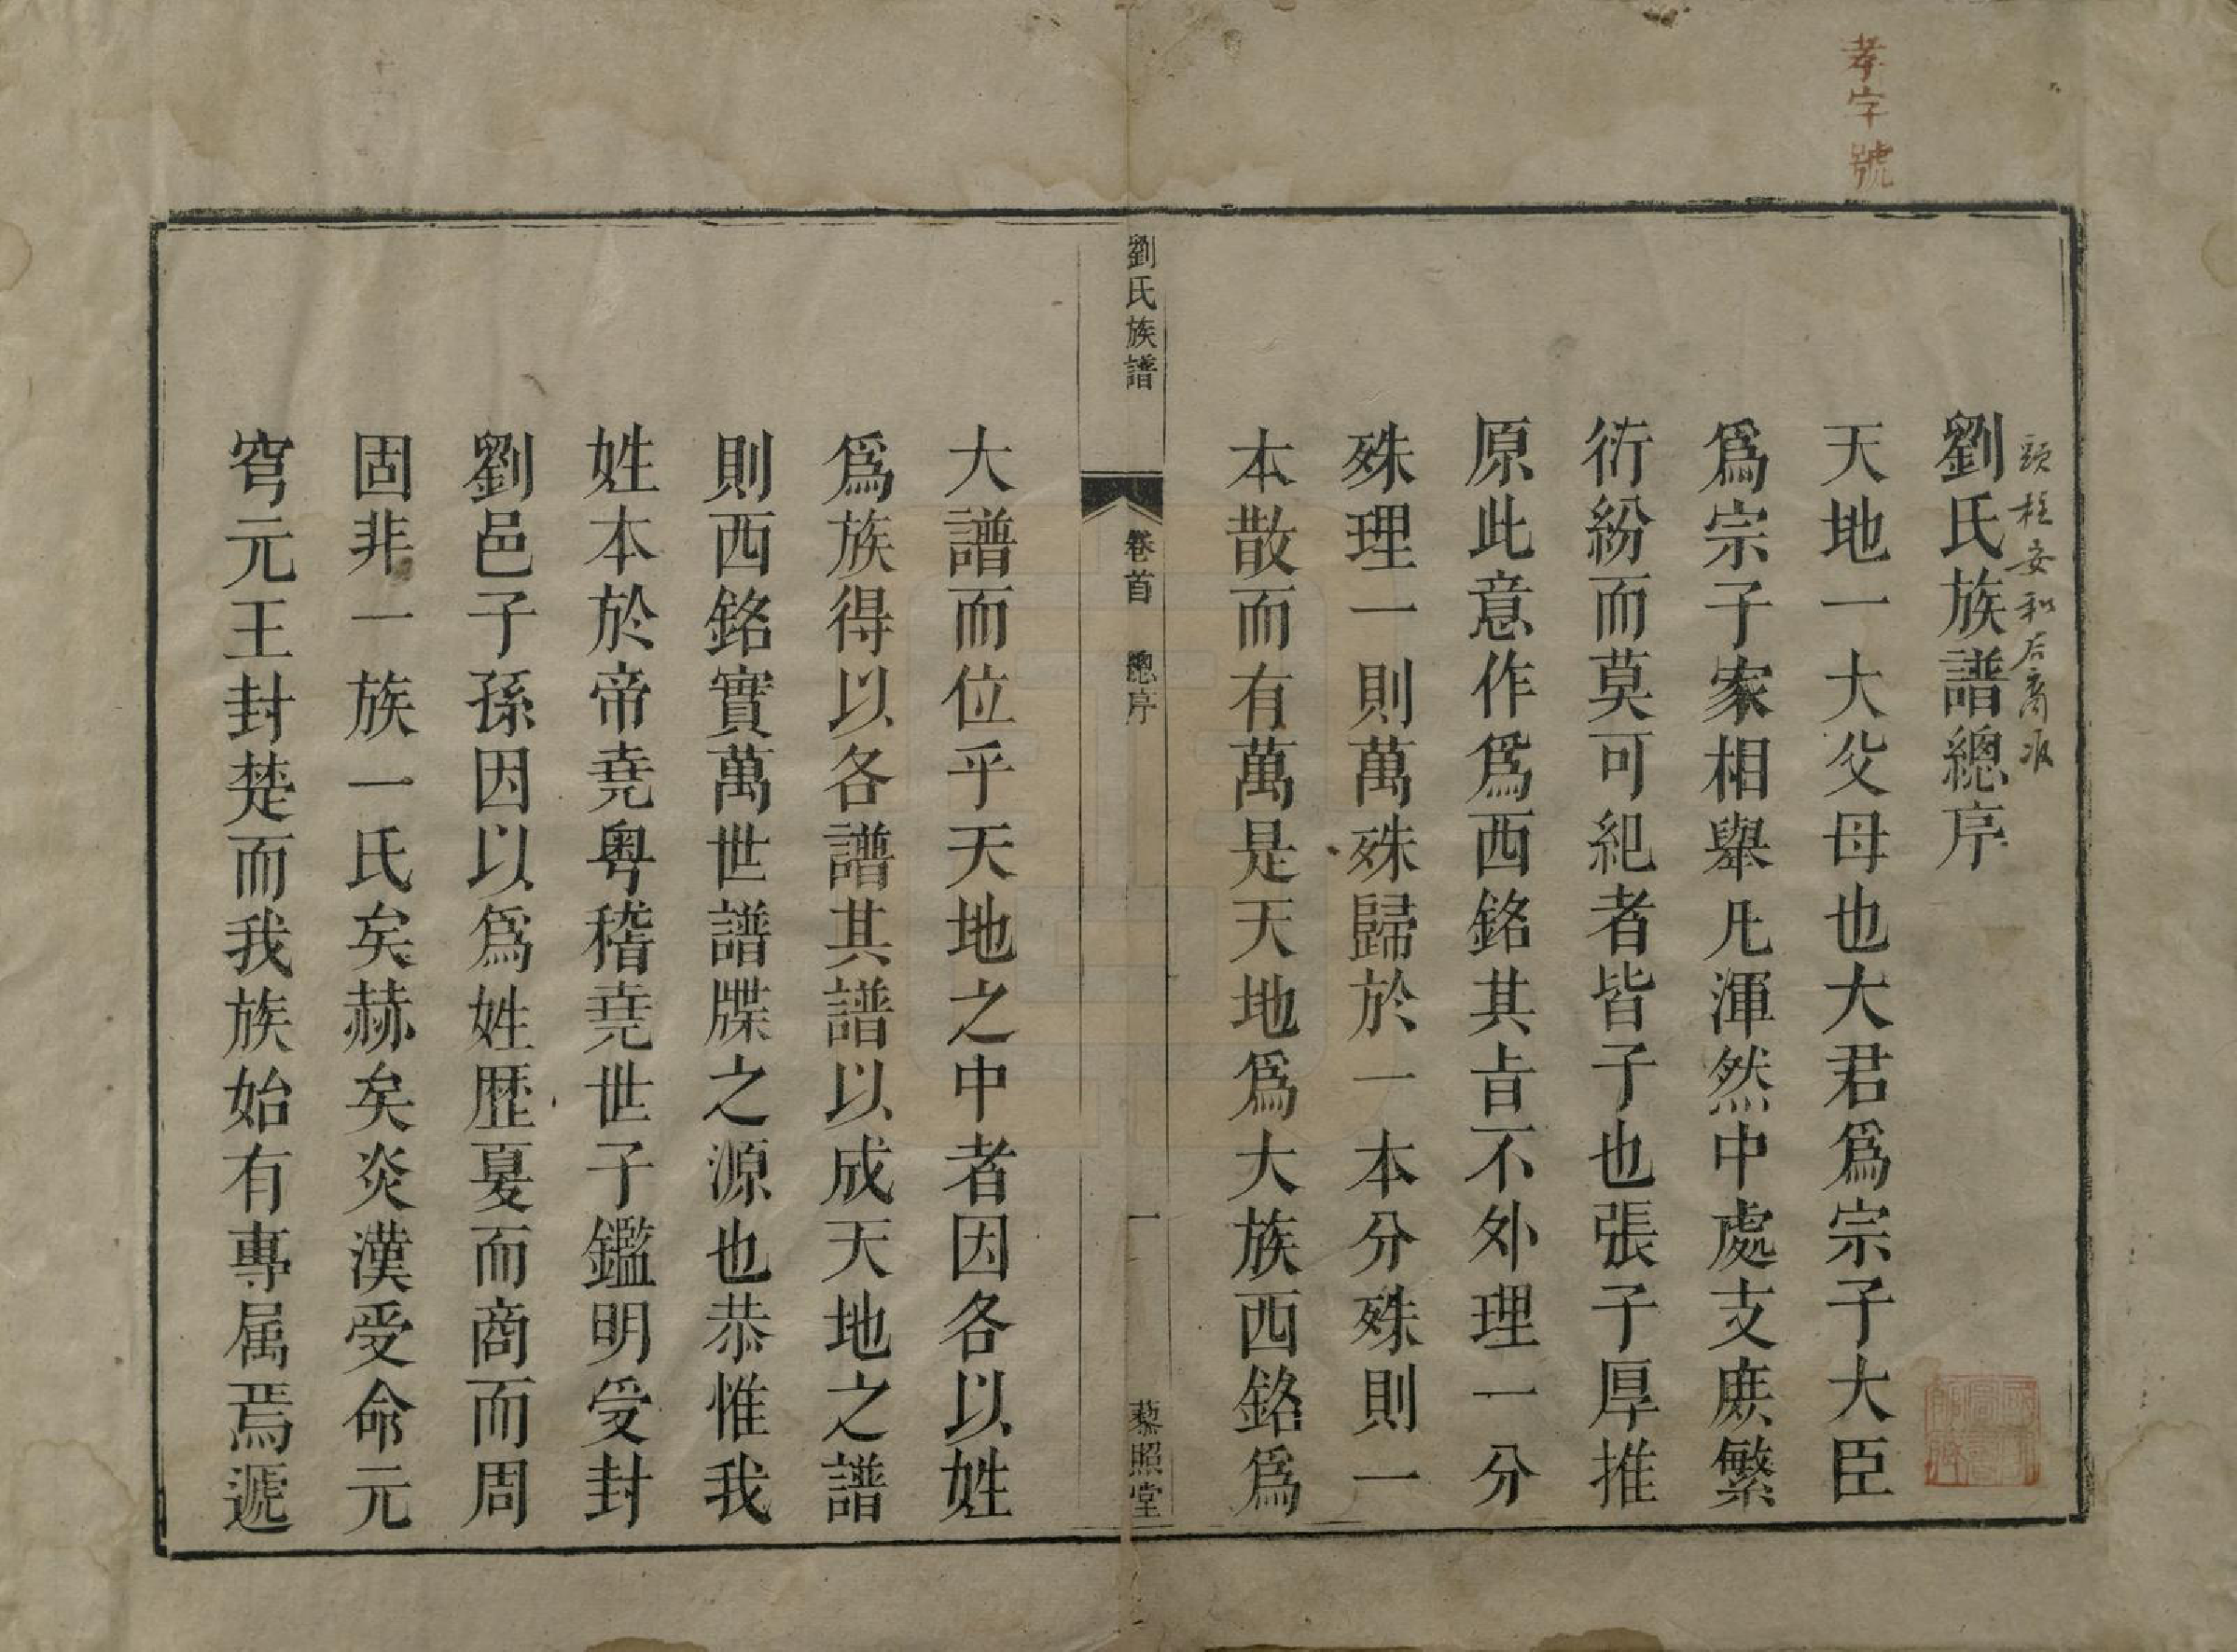 孝字號
劉氏族譜總序
天地一大父母也大君爲宗子大臣
爲宗子家相舉凡渾然中處支庶繁
衍紛而莫可紀者皆子也張子厚推
原此意作爲西銘其㫖不外理一分
殊理一則萬殊歸於一本分殊則一
本散而有萬是天地爲大族西銘爲
劉氏族譜
卷首
總序
一
藜照堂
大譜而位乎天地之中者因各以姓
爲族得以各譜其譜以成天地之譜
則西銘實萬世譜牒之源也恭惟我
姓本於帝堯粵稽堯世子鑑明受封
劉邑子孫因以爲姓歷夏而商而周
固非一族一氏矣赫矣炎漢受命元
穹元王封楚而我族始有專属焉遞